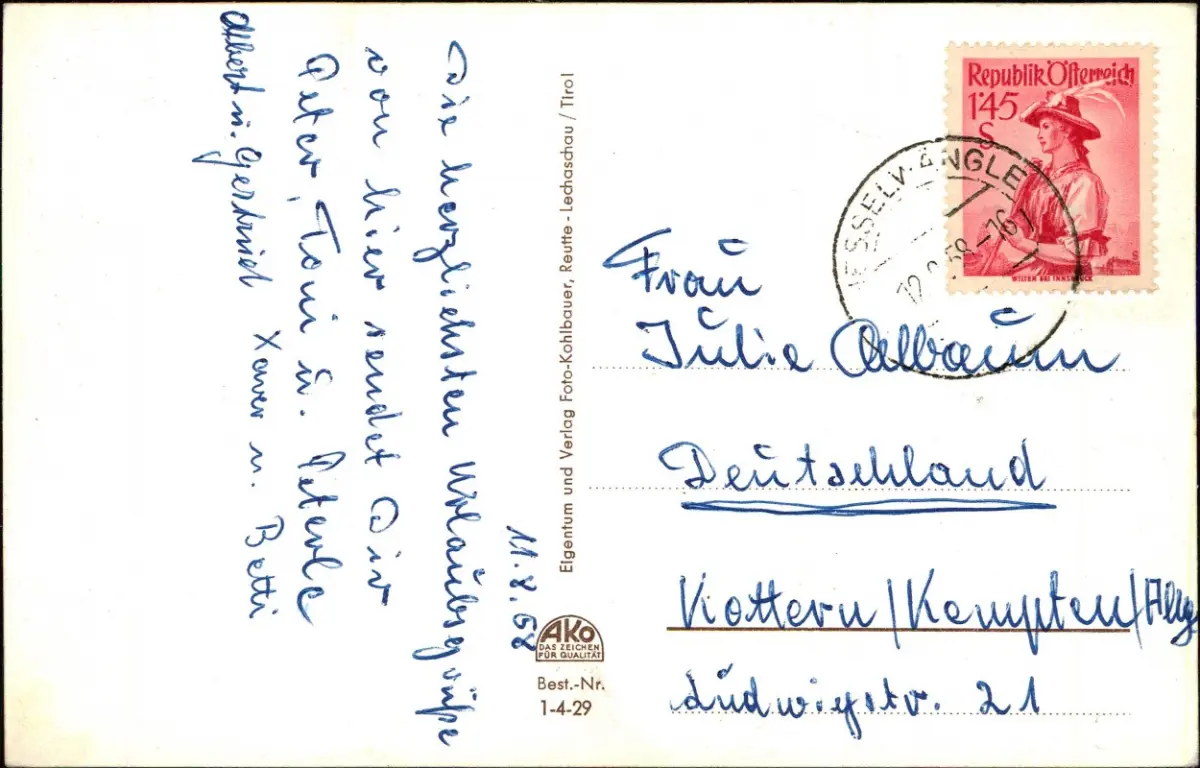 11.8.58
Die herzlichsten Urlaubsgrüße
von hier sendet Dir
Peter, Toni u. Peterle
Albert u. Gertrud Xaver u. Betti
Eigentum und Verlag Foto-Kohlbauer, Reutte - Lechaschau / Tirol
AKO
DAS ZEICHEN
FÜR QUALITÄT
Best.-Nr.
1-4-29
Republik Österreich
1'45
S
WILTEN BEI INNSBRUCK
NESSELWÄNGLE
58-16
Frau
Julie Albaum
Deutschland
Kottern/Kempten/Allg
Ludwigstr. 21